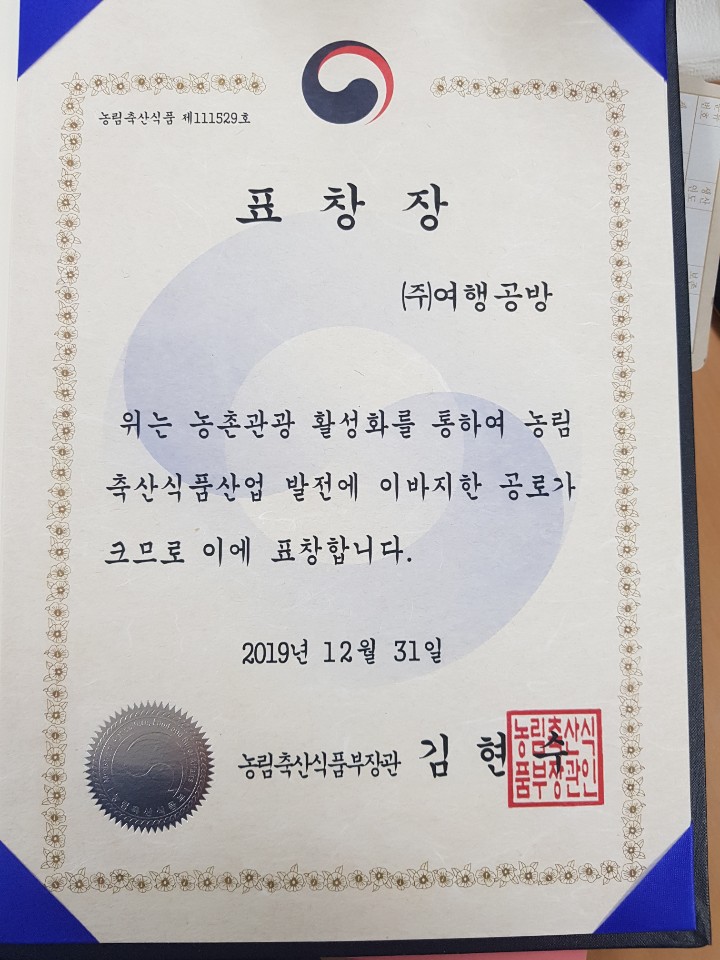 농림축산식품 제111529호
표 창 장
(주)여행공방
위는 농촌관광 활성화를 통하여 농림
축산식품산업 발전에 이바지한 공로가
크므로 이에 표창합니다.
2019년 12월 31일
농림축산식품부장관 김 현 수
농림축산식
품부장관인